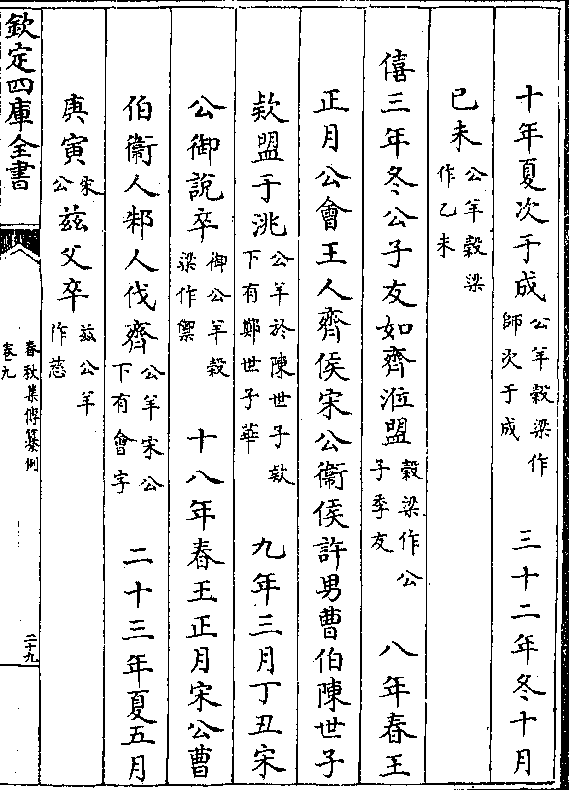 十年夏次于成公羊穀梁作師次于成　三十二年冬十月
己未公羊穀梁作乙未
僖三年冬公子友如齊涖盟穀梁作公子季友　八年春王
正月公會王人齊侯宋公衞侯許男曹伯陳世子
欵盟于洮公羊於陳世子欵下有鄭世子華　九年三月丁丑宋
公御說卒御公羊穀梁作禦　十八年春王正月宋公曹
伯衞人邾人伐齊公羊宋公下有會字　二十三年夏五月
庚寅宋公兹父卒兹公羊作慈
欽定四庫全書
春秋集傳纂例
卷九
二十九